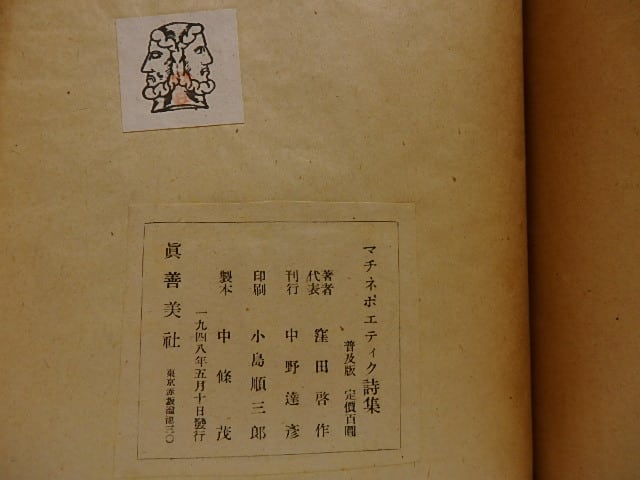 マチネポエティク詩集
普及版 定價百圓
著者代表 窪田啓作
刊行 中野達彦
印刷 小島順三郎
製本 中條茂
一九四八年五月十日發行
眞善美社 東京赤坂溜池三〇